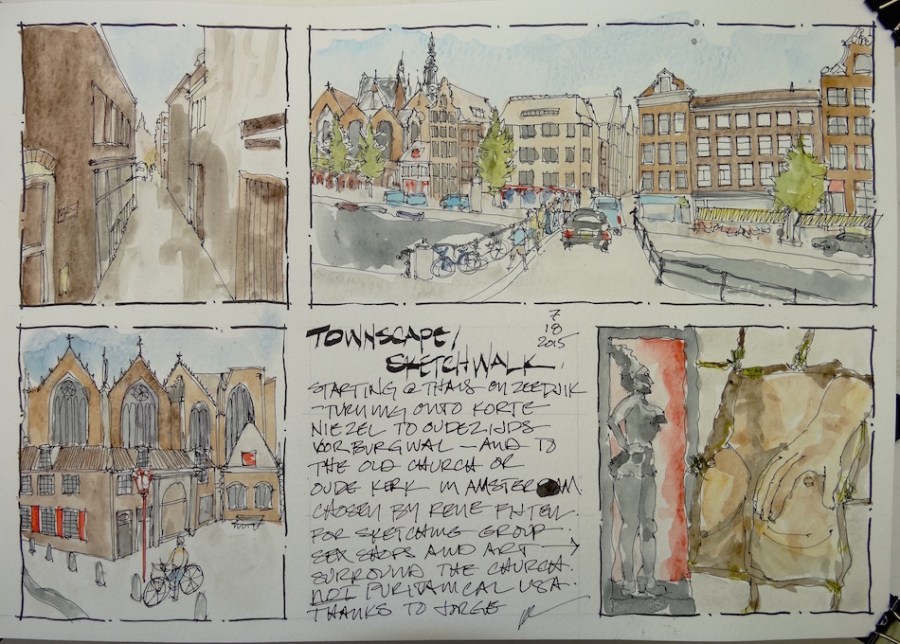 7
18
2015
TOWNSCAPE/
SKETCHWALK.
STARTING @ THAIS ON ZEEDIJK
-TURNING ONTO KORTE
NIEZEL TO OUDEZIJDS
VORBURGWAL - AND TO
THE OLD CHURCH OR
OUDE KERK IN AMSTERDAM.
CHOSEN BY RENE FIJTEN
FOR SKETCHING GROUP
SEX SHOPS AND ART →
SURROUND THE CHURCH.
NOT PURITANICAL USA.
THANKS TO JORGE